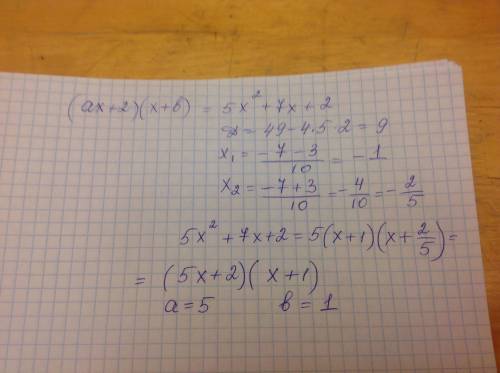 (ax+2)(x+b) = 5x² + 7x + 2
D = 49 - 4·5·2 = 9
x₁ = (-7 - 3)/10 = -1
x₂ = (-7 + 3)/10 = -4/10 = -2/5
5x² + 7x + 2 = 5(x+1)(x + 2/5) =
= (5x+2)(x+1)
a = 5 b = 1